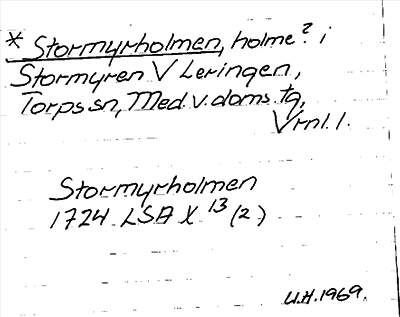 * Stormyrholmen, holme? i
Stormyren V Leringen,
Torps sn, Med. v. doms. tg,
Vrnl. l.
Stormyrholmen
1724 LSA X 13 (2)
U.H. 1969.